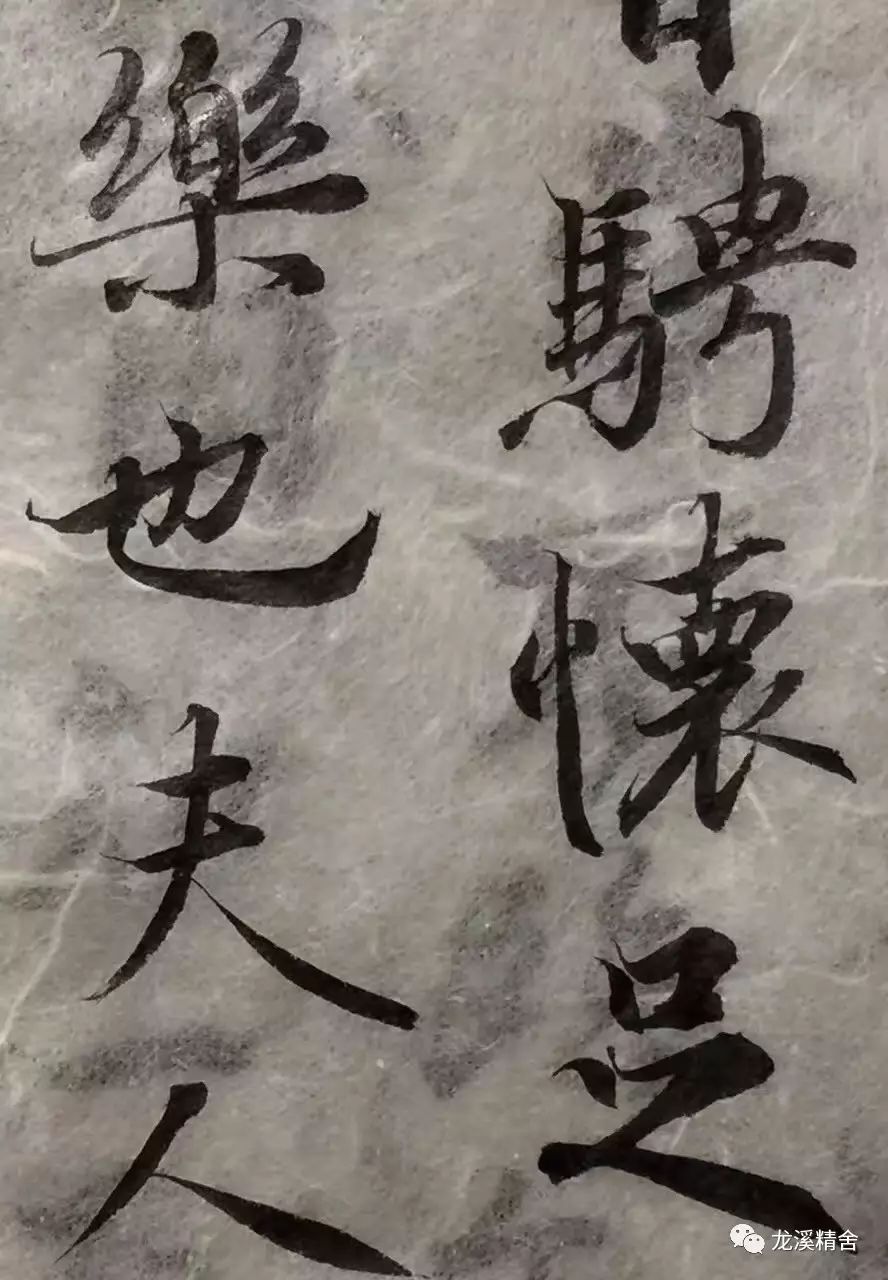 騁懷足
樂也夫人
龙溪精舍